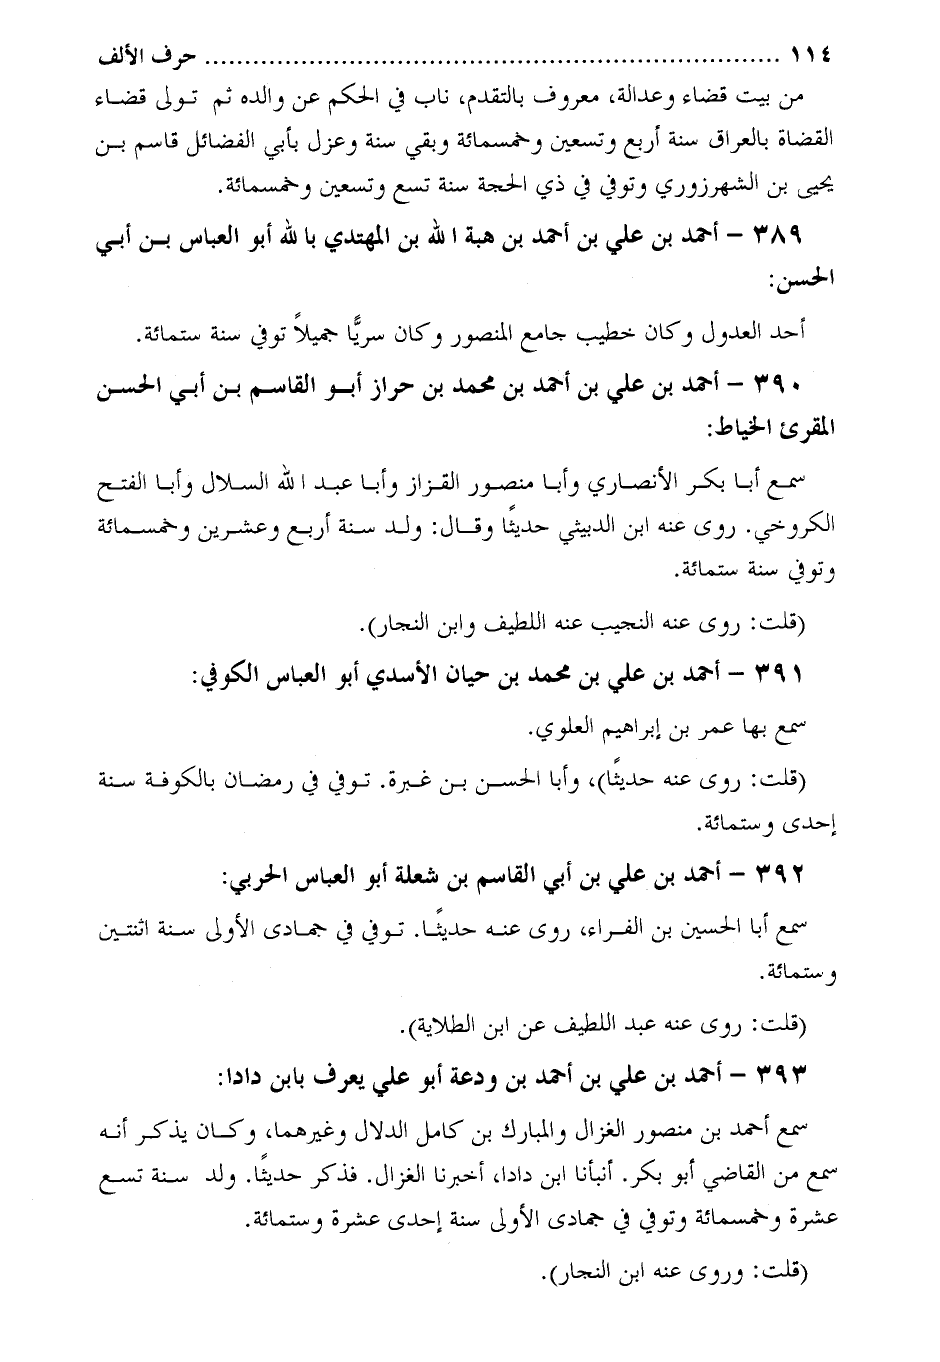 ١١٤ ........................................................................ حرف الألف
من بيت قضاء وعدالة، معروف بالتقدم، ناب في الحكم عن والده ثم تولى قضاء
القضاة بالعراق سنة أربع وتسعين وخمسمائة وبقي سنة وعزل بأبي الفضائل قاسم بن
يحيى بن الشهرزوري وتوفي في ذي الحجة سنة تسع وتسعين وخمسمائة.
٣٨٩ – أحمد بن علي بن أحمد بن هبة الله بن المهتدي بالله أبو العباس بن أبي
الحسن:
أحد العدول وكان خطيب جامع المنصور وكان سريًّا جميلاً توفي سنة ستمائة.
٣٩٠ – أحمد بن علي بن أحمد بن محمد بن حراز أبو القاسم بن أبي الحسن
المقرئ الخياط:
سمع أبا بكر الأنصاري وأبا منصور القزاز وأبا عبد الله السلال وأبا الفتح
الكروخي. روى عنه ابن الدبيثي حديثًا وقال: ولد سنة أربع وعشرين وخمسمائة
وتوفي سنة ستمائة.
(قلت: روى عنه النجيب عنه اللطيف وابن النجار).
٣٩١ – أحمد بن علي بن محمد بن حيان الأسدي أبو العباس الكوفي:
سمع بها عمر بن إبراهيم العلوي.
(قلت: روى عنه حديثًا)، وأبا الحسن بن غبرة. توفي في رمضان بالكوفة سنة
إحدى وستمائة.
٣٩٢ – أحمد بن علي بن أبي القاسم بن شعلة أبو العباس الحربي:
سمع أبا الحسين بن الفراء، روى عنه حديثًا. توفي في جمادى الأولى سنة اثنتين
وستمائة.
(قلت: روى عنه عبد اللطيف عن ابن الطلاية).
٣٩٣ – أحمد بن علي بن أحمد بن ودعة أبو علي يعرف بابن دادا:
سمع أحمد بن منصور الغزال والمبارك بن كامل الدلال وغيرهما، وكان يذكر أنه
سمع من القاضي أبو بكر. أنبأنا ابن دادا، أخبرنا الغزال. فذكر حديثًا. ولد سنة تسع
عشرة وخمسمائة وتوفي في جمادى الأولى سنة إحدى عشرة وستمائة.
(قلت: وروى عنه ابن النجار).